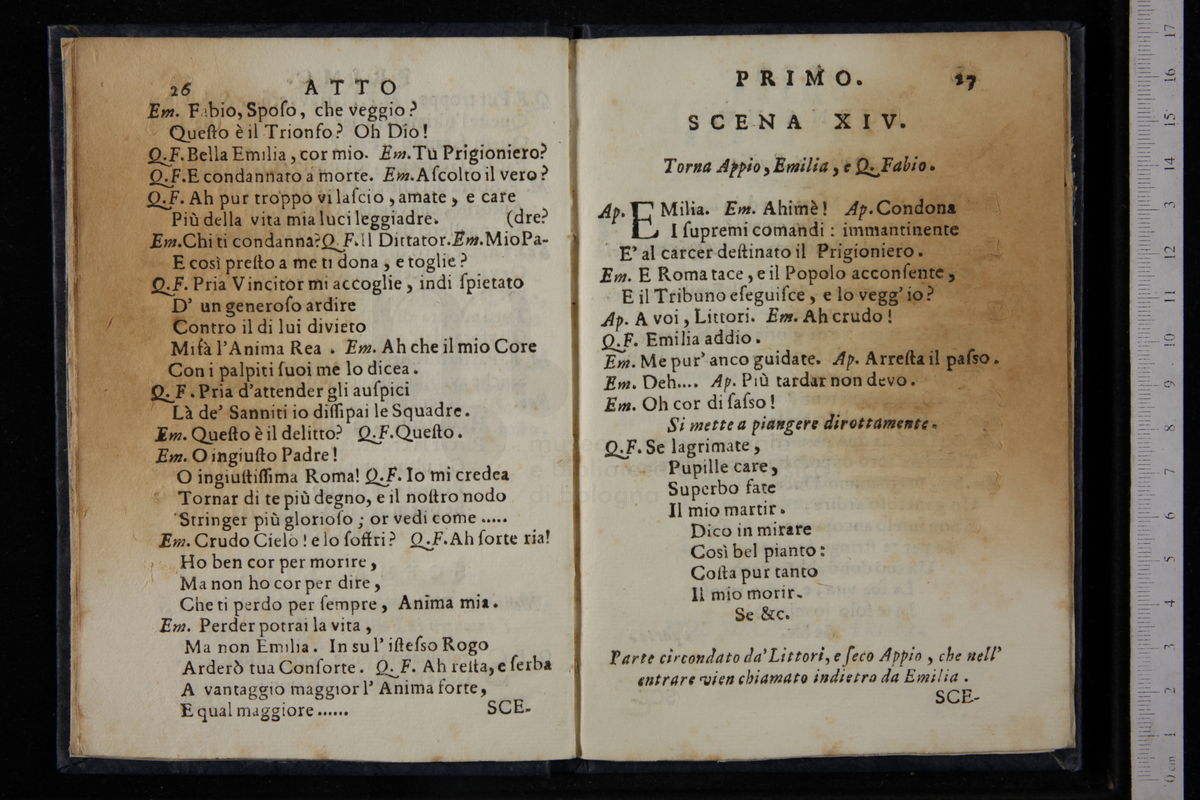 26 ATTO
Em. Fabio, Spoſo, che veggio?
Queſto è il Trionfo? Oh Dio!
Q.F. Bella Emilia, cor mio. Em. Tu Prigioniero?
Q.F. E condannato a morte. Em. Aſcolto il vero?
Q.F. Ah pur troppo vi laſcio, amate, e care
Più della vita mia luci leggiadre. (dre?
Em. Chi ti condanna? Q.F. Il Dittator. Em. Mio Pa-
E così preſto a me ti dona, e toglie?
Q.F. Pria Vincitor mi accoglie, indi ſpietato
D' un generoſo ardire
Contro il di lui divieto
Mi fà l'Anima Rea. Em. Ah che il mio Core
Con i palpiti ſuoi me lo dicea.
Q. F. Pria d'attender gli auſpici
Là de' Sanniti io diſſipai le Squadre.
Em. Queſto è il delitto? Q.F. Queſto.
Em. O ingiuſto Padre!
O ingiuſtiſſima Roma! Q.F. Io mi credea
Tornar di te più degno, e il noſtro nodo
Stringer più glorioſo; or vedi come .....
Em. Crudo Cielo! e lo ſoffri? Q.F. Ah ſorte ria!
Ho ben cor per morire,
Ma non ho cor per dire,
Che ti perdo per ſempre, Anima mia.
Em. Perder potrai la vita,
Ma non Emilia. In su l' iſteſso Rogo
Arderò tua Conſorte. Q. F. Ah reſta, e ſerba
A vantaggio maggior l' Anima forte,
E qual maggiore ......
SCE-
PRIMO. 27
SCENA XIV.
Torna Appio, Emilia, e Q. Fabio.
Ap. EMilia. Em. Ahimè! Ap. Condona
I ſupremi comandi: immantinente
E' al carcer deſtinato il Prigioniero.
Em. E Roma tace, e il Popolo acconſente,
E il Tribuno eſeguiſce, e lo vegg' io?
Ap. A voi, Littori. Em. Ah crudo!
Q.F. Emilia addio.
Em. Me pur' anco guidate. Ap. Arreſta il paſso.
Em. Deh.... Ap. Più tardar non devo.
Em. Oh cor di ſaſso!
Si mette a piangere dirottamente.
Q.F. Se lagrimate,
Pupille care,
Superbo fate
Il mio martir.
Dico in mirare
Così bel pianto:
Coſta pur tanto
Il mio morir.
Se &c.
Parte circondato da' Littori, e ſeco Appio, che nell'
entrare vien chiamato indietro da Emilia.
SCE-